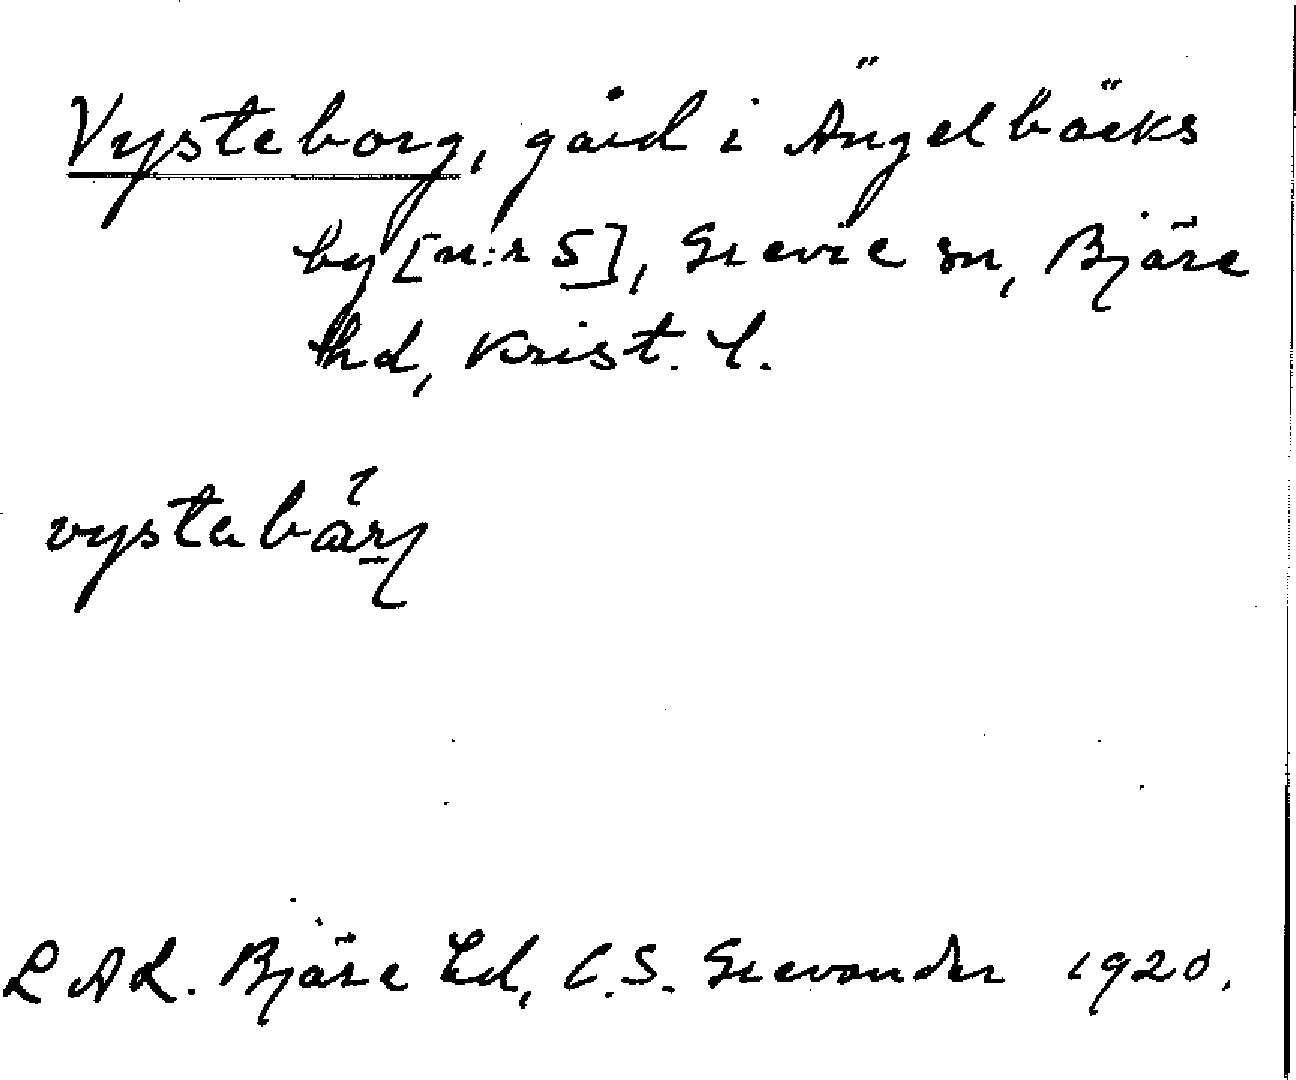 Vysteborg, gård i Ängelbäcks
by [n:r 5], Grevie sn, Bjäre
hd, Krist. l.
LAL. Bjäre hd, C.S. Grevander 1920.